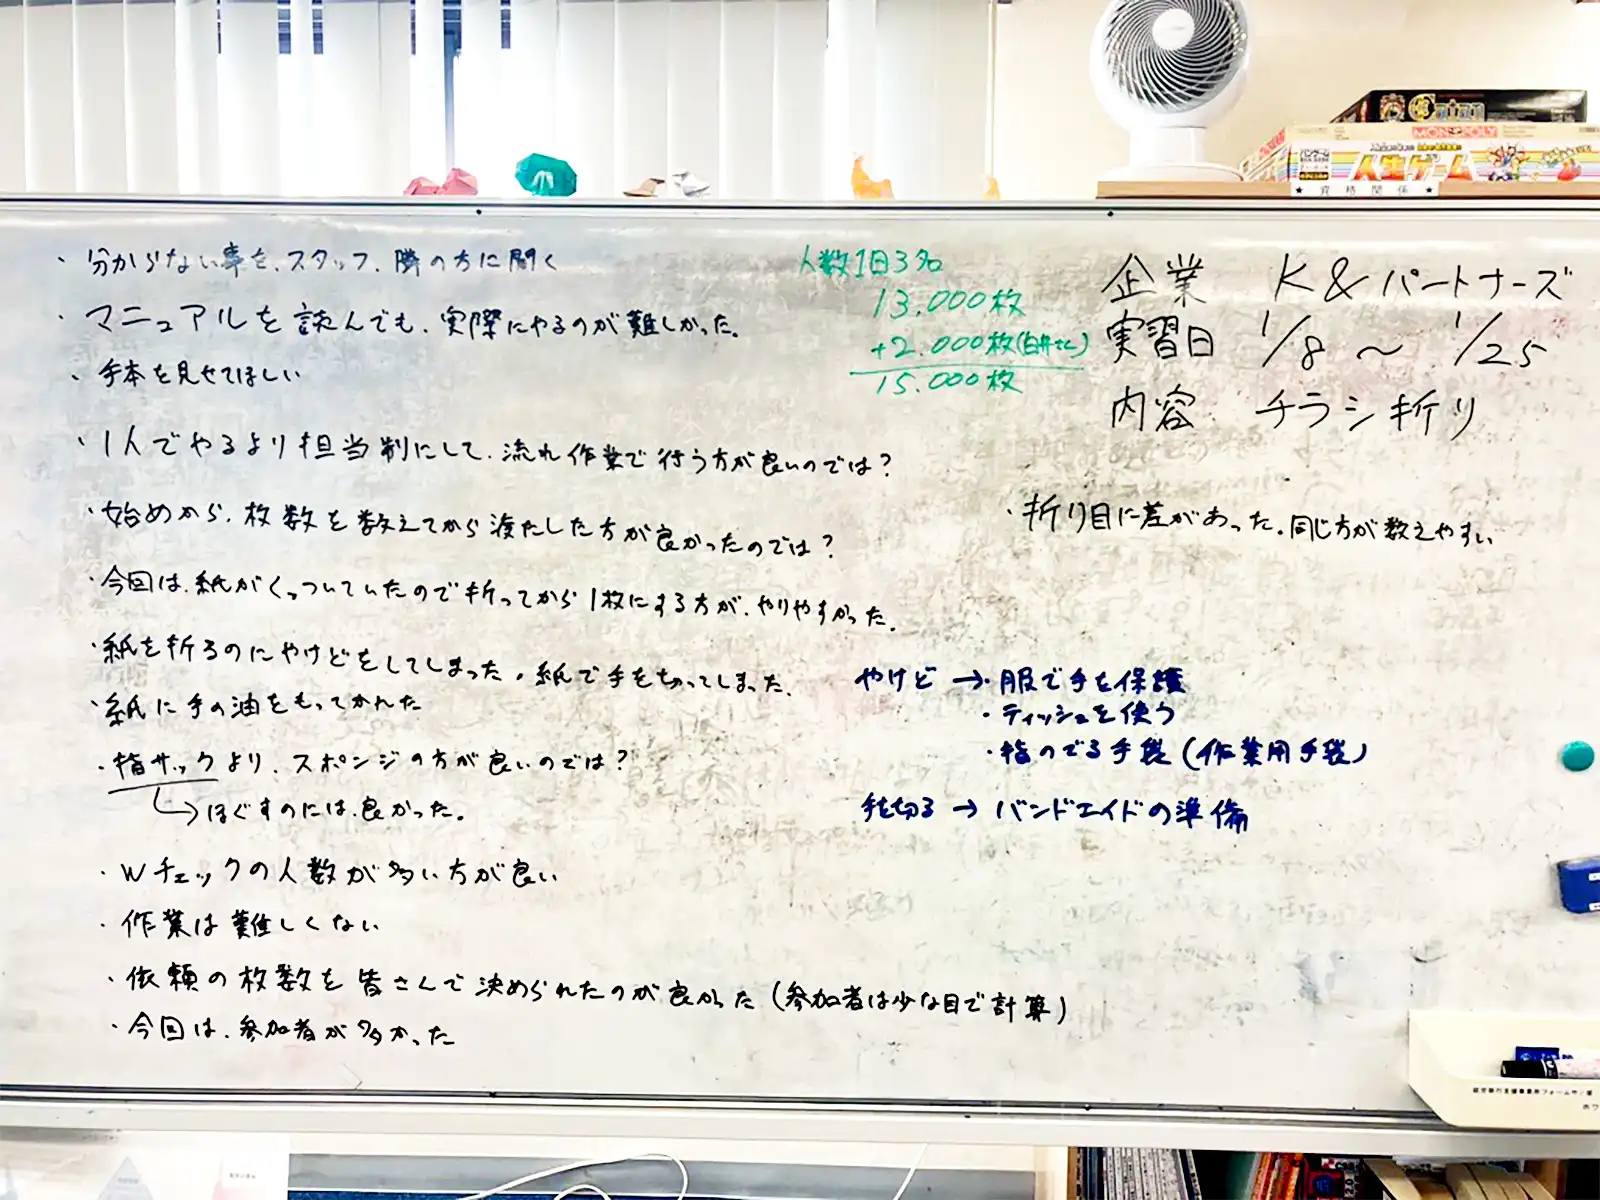 ・分からない事を、スタッフ、隣の方に聞く
・マニュアルを読んでも、実際にやるのが難しかった。
・手本を見せてほしい
・1人でやるより担当制にして、流れ作業で行う方が良いのでは?
・始めから、枚数を数えてから渡たした方が良かったのでは?
・今回は、紙がくっついていたので折ってから1枚にする方が、やりやすかった。
・紙を折るのにやけどをしてしまった。紙で手を切ってしまった。
・紙に手の油をもってかれた
・指サックより、スポンジの方が良いのでは?
→ほぐすのには、良かった。
・Wチェックの人数が多い方が良い
・作業は難しくない
・依頼の枚数を皆さんで決められたのが良かった(参加者は少な目で計算)
・今回は、参加者が多かった
人数1日3名
13.000枚
+2.000枚(白井さん)
15.000枚
企業 K&パートナーズ
実習日 1/8 〜 1/25
内容 チラシ折り
・折り目に差があった。同じ方が数えやすい
やけど →・服で手を保護
・ティッシュを使う
・指のでる手袋(作業用手袋)
手を切る → バンドエイドの準備
Catan
MONOPOLY
人生ゲーム
★ 資格関係 ★